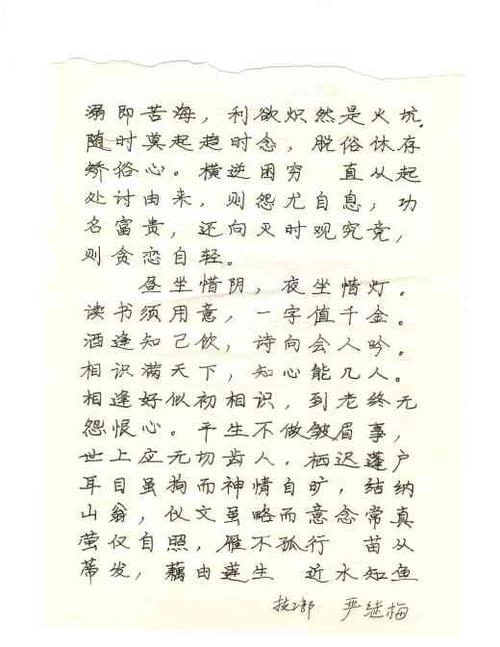 溺即苦海，利欲炽然是火坑，
随时莫起趋时念，脱俗休存
矫俗心。横逆困穷 直从起
处讨由来，则怨尤自息，功
名富贵，还向灭时观究竟，
则贪恋自轻。
昼坐惜阴，夜坐惜灯。
读书须用意，一字值千金。
酒逢知己饮，诗向会人吟。
相识满天下，知心能几人。
相逢好似初相识，到老终无
怨恨心。平生不做皱眉事，
世上应无切齿人，栖迟蓬户
耳目虽狗而神情自旷，结纳
山翁，仪文虽略而意念常真
萤仅自照，雁不孤行 苗从
蒂发，藕由莲生 近水知鱼
技二部 严继梅